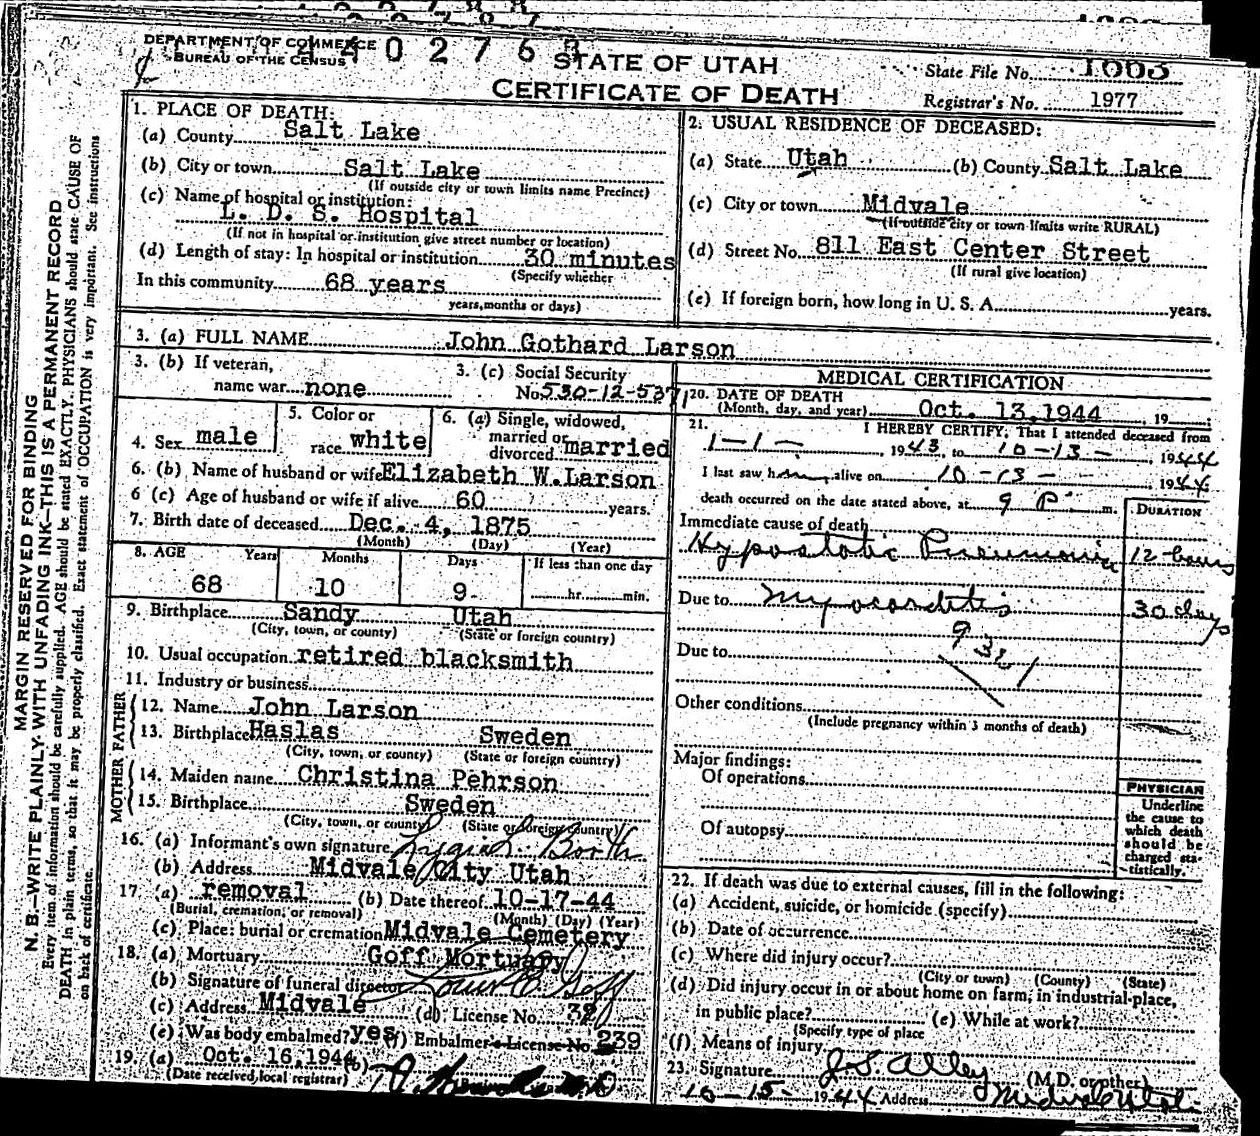 DEPARTMENT OF COMMERCE
BUREAU OF THE CENSUS
STATE OF UTAH
CERTIFICATE OF DEATH
State File No.
Registrar's No. 1977
MARGIN RESERVED FOR BINDING
N. B.—WRITE PLAINLY, WITH UNFADING INK—THIS IS A PERMANENT RECORD
Every item of information should be carefully supplied. AGE should be stated EXACTLY. PHYSICIANS should state CAUSE OF
DEATH in plain terms, so that it may be properly classified. Exact statement of OCCUPATION is very important. See instructions
on back of certificate.
1. PLACE OF DEATH:
(a) County Salt Lake
(b) City or town Salt Lake
(If outside city or town limits name Precinct)
(c) Name of hospital or institution:
L. D. S. Hospital
(If not in hospital or institution give street number or location)
(d) Length of stay: In hospital or institution 30 minutes
(Specify whether
In this community 68 years
years, months or days)
2. USUAL RESIDENCE OF DECEASED:
(a) State Utah (b) County Salt Lake
(c) City or town Midvale
(If outside city or town limits write RURAL)
(d) Street No. 811 East Center Street
(If rural give location)
(e) If foreign born, how long in U. S. A. years.
3. (a) FULL NAME John Gothard Larson
3. (b) If veteran,
name war none
3. (c) Social Security
No. 530-12-5371
4. Sex male
5. Color or
race white
6. (a) Single, widowed,
married or
divorced married
6. (b) Name of husband or wife Elizabeth W. Larson
6 (c) Age of husband or wife if alive 60 years.
7. Birth date of deceased Dec. 4, 1875
(Month) (Day) (Year)
8. AGE Years Months Days If less than one day
68 10 9 hr. min.
9. Birthplace Sandy Utah
(City, town, or county) (State or foreign country)
10. Usual occupation retired blacksmith
11. Industry or business
FATHER
12. Name John Larson
13. Birthplace Haslas Sweden
(City, town, or county) (State or foreign country)
MOTHER
14. Maiden name Christina Pehrson
15. Birthplace Sweden
(City, town, or county) (State or foreign country)
16. (a) Informant's own signature
(b) Address Midvale City Utah
17. (a) removal (b) Date thereof 10-17-44
(Burial, cremation, or removal) (Month) (Day) (Year)
(c) Place: burial or cremation Midvale Cemetery
18. (a) Mortuary Goff Mortuary
(b) Signature of funeral director Goff
(c) Address Midvale (d) License No.
(e) Was body embalmed? yes (f) Embalmer's License No. 239
19. (a) Oct. 16, 1944 (b)
(Date received, local registrar)
MEDICAL CERTIFICATION
20. DATE OF DEATH
(Month, day, and year) Oct. 13, 1944 19
21. I HEREBY CERTIFY, That I attended deceased from
1-1- 1943, to 10-13-, 1944
I last saw him alive on 10-13- 1944
death occurred on the date stated above, at 9 P. m.
DURATION
Immediate cause of death
Hypostatic Pneumonia 12 hours
Due to Myocarditis 30 days
Due to
Other conditions
(Include pregnancy within 3 months of death)
Major findings:
Of operations
Of autopsy
PHYSICIAN
Underline
the cause to
which death
should be
charged sta-
tistically.
22. If death was due to external causes, fill in the following:
(a) Accident, suicide, or homicide (specify)
(b) Date of occurrence
(c) Where did injury occur?
(City or town) (County) (State)
(d) Did injury occur in or about home on farm, in industrial place,
in public place? (e) While at work?
(Specify type of place
(f) Means of injury
23. Signature J. S. Alley (M.D. or other)
10-15-1944 Address Midvale Utah